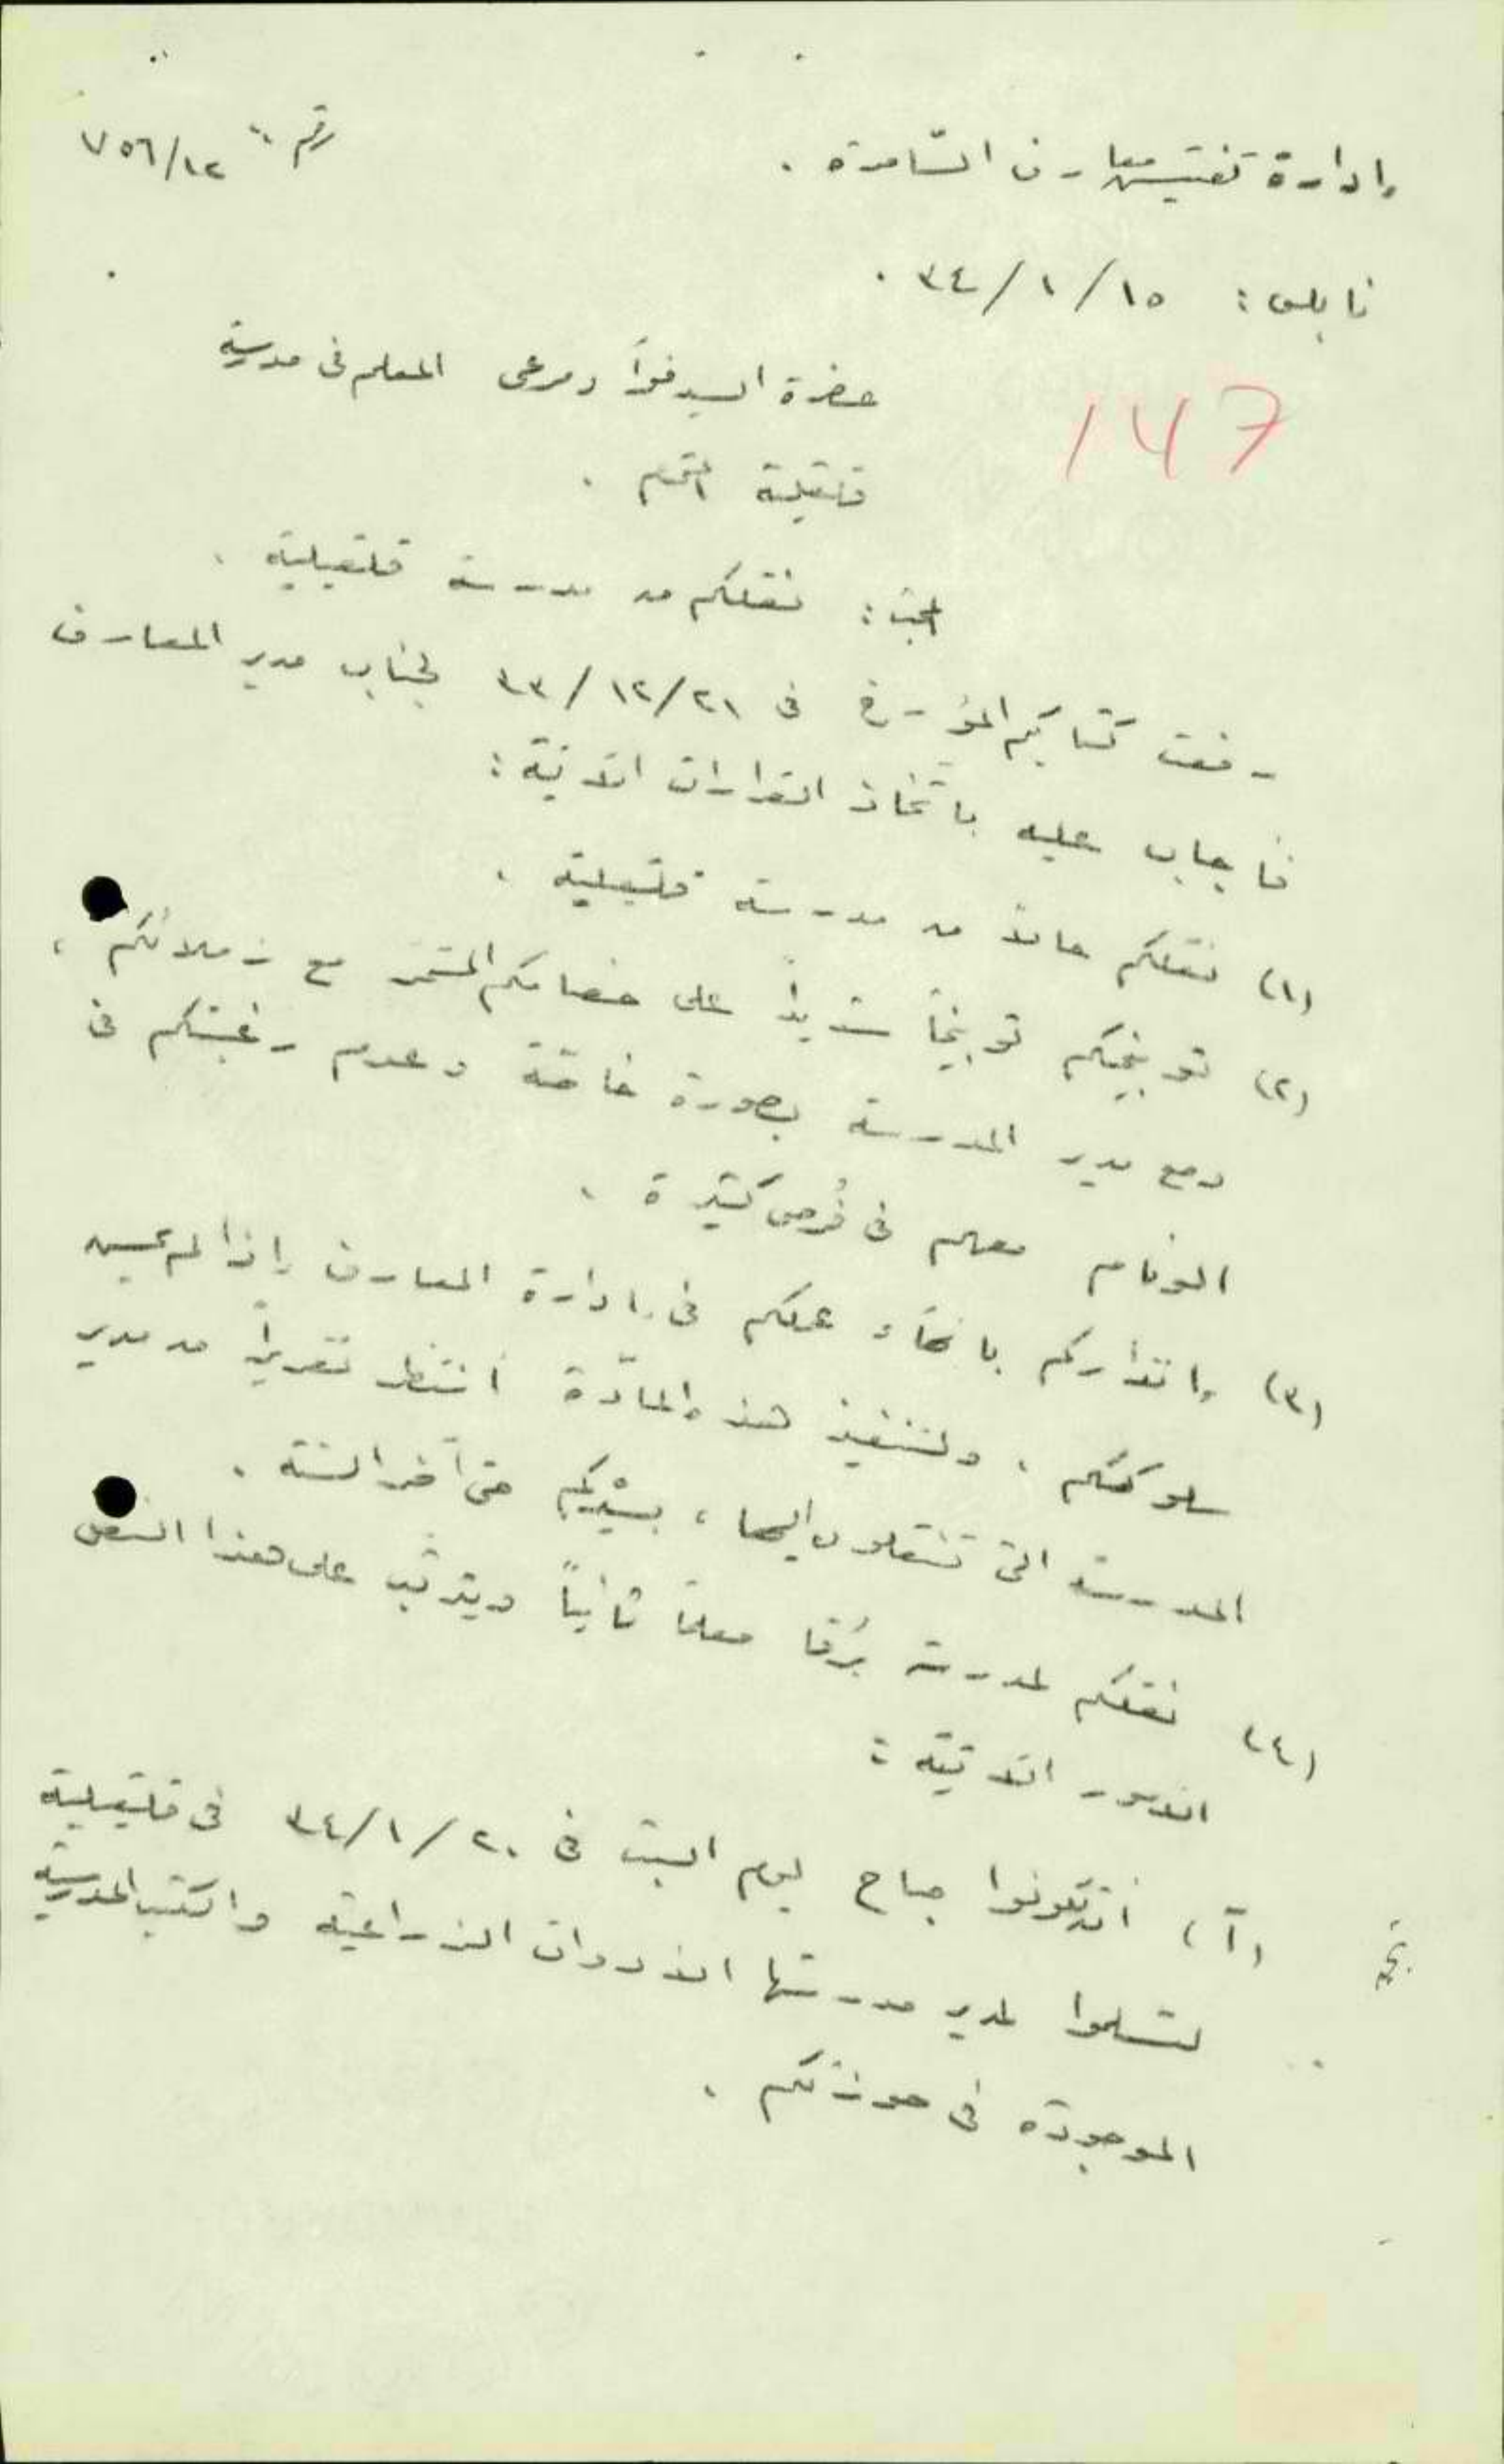 إدارة تفتيش معارف السّامرة . رقم ٧٥٦/١٢
نابلس : ٣٤/١/١٥ .
147
حضرة السيد فؤاد مرعي المعلم في مدرسة
قلقيلية المحترم .
المبحث : نقلكم من مدرسة قلقيلية .
رفعت كتابكم المؤرخ في ٣٣/١٢/٢١ لجناب مدير المعارف
فأجاب عليه باتّخاذ القرارات الآتية :
(١) نقلكم حالاً من مدرسة قلقيلية .
(٢) توبيخكم توبيخاً شديداً على خصامكم المستمر مع زملائكم ،
ومع مدير المدرسة بصورة خاصّة وعدم رغبتكم في
الوئام معهم في فُرص كثيرة .
(٣) وإنذاركم بإنهاء عملكم في إدارة المعارف إذا لم يحسن
سلوككم . ولتنفيذ هذه المادّة أنتظر تقريراً من مدير
المدرسة التي تنتقلون إليها ، بسيركم حتى آخر السنة .
(٤) نقلكم لمدرسة بُرقا معلماً ثانياً ويترتّب على هذا النقل
الأمور الآتية :
(آ) أن تكونوا صباح يوم السبت في ٣٤/١/٢٠ في قلقيلية
لتسلموا لمدير مدرستها الأدوات الزراعية والكتب المدرسية
الموجودة في حوزتكم .